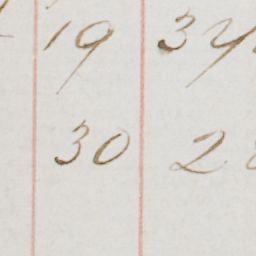 19 34
30 2